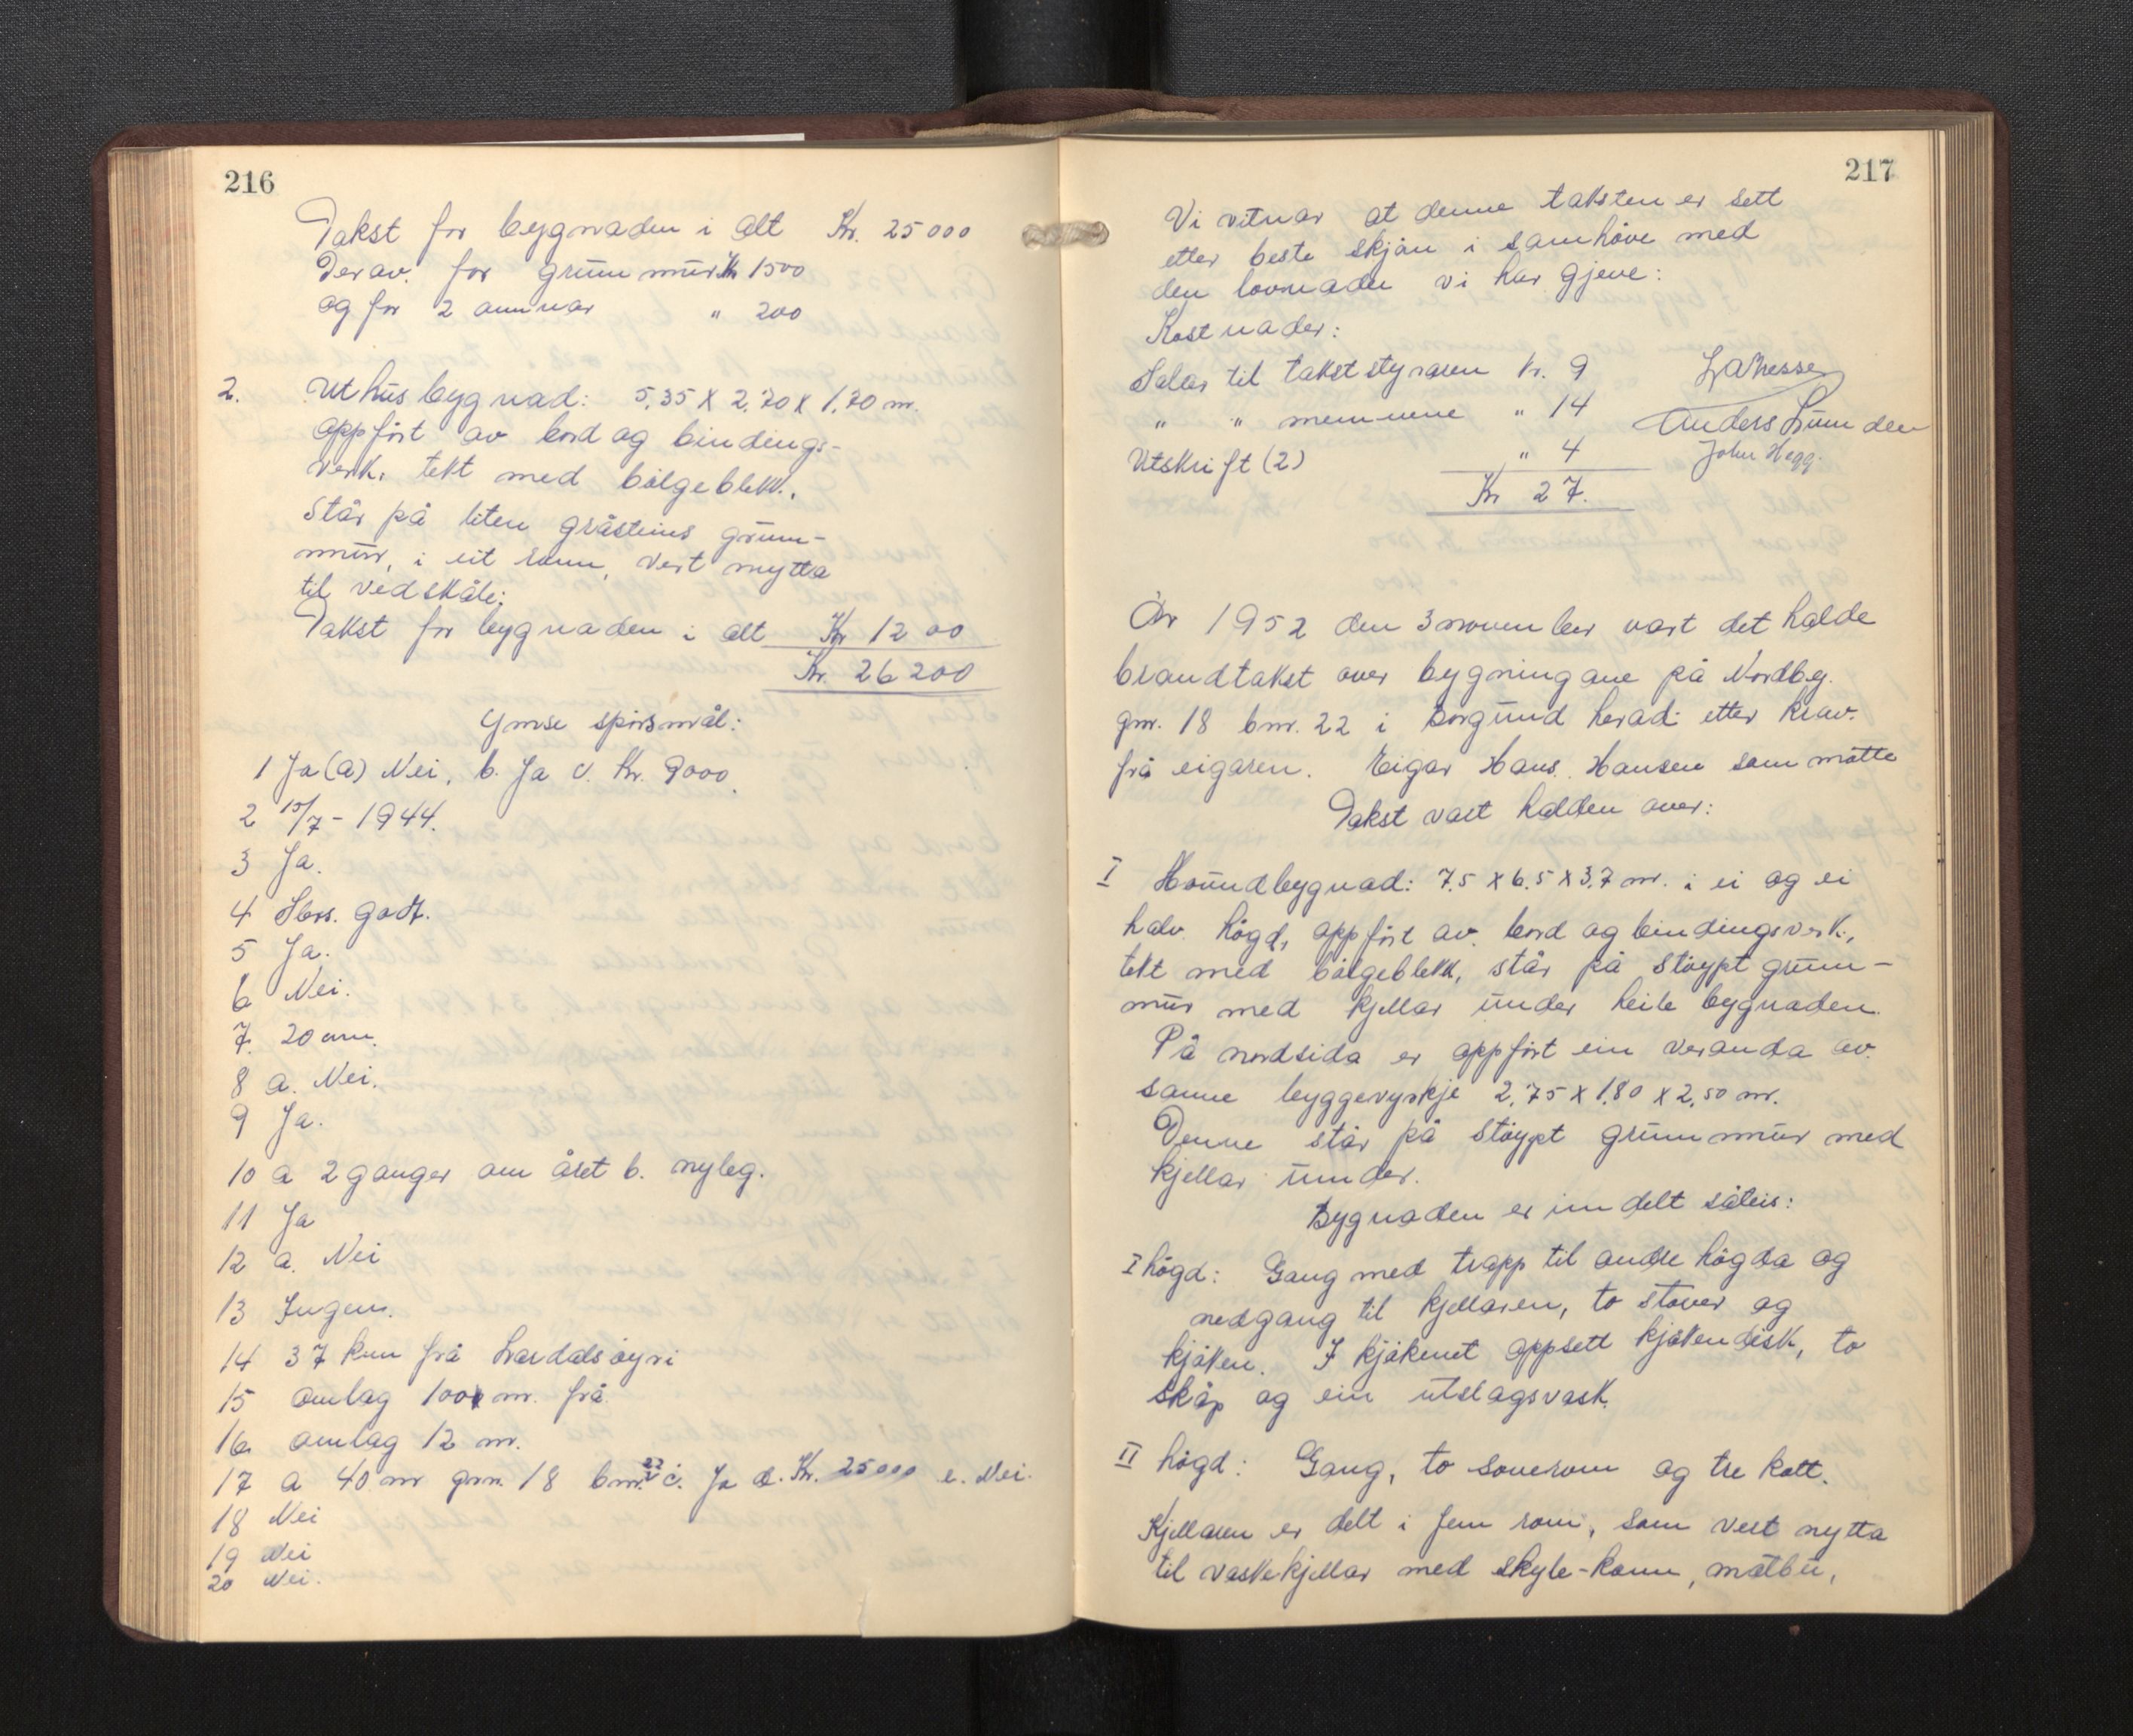 216
Takst for bygnaden i alt Kr. 25000
Derav. for grunnmur Kr 1500
og for 2 omnar " 200
2. Uthusbygnad: 5,35 X 2,70 X 1,70 m.
oppført av bord og bindings-
verk, tekt med bølgeblekk,
står på liten gråsteins grunn-
mur, i eit rom, vert nytta
til vedskåle:
Takst for bygnaden i alt Kr 1200
Kr. 26200
Ymse spörsmål:
1 Ja (a) Nei, b. Ja c. Kr. 9000.
2 15/7 - 1944.
3 Ja.
4 Sers. godt.
5 Ja.
6 Nei.
7. 20 cm.
8 a. Nei.
9 Ja.
10 a 2 ganger om året b. nyleg.
11 Ja
12 a. Nei
13 Ingen.
14 37 km frå Lærdalsøyri
15 omlag 100 m. frå
16 omlag 12 m.
17 a 40 m gnr. 18 bnr. 22 c. Ja d. Kr. 25000 e. Nei.
18 Nei
19 Nei
20 Nei.
217
Vi vitnar at denne taksten er sett
etter beste skjøn i samhøve med
den lovnaden vi har gjeve:
Kostnader:
Salar til takststyraren Kr. 9
" " mennene " 14 Anders Lunden
Utskrift (2) " 4 John Hegg.
Kr 27.
År 1952 den 3 november vart det halde
brandtakst over bygningane på Nordbg.
gnr. 18 bnr. 22 i Borgund herad etter krav.
frå eigaren. Eigar Hans Hansen som møtte
Takst vart halden over:
I Hovudbygnad: 7.5 X 6.5 X 3.7 m. i ei og ei
halv högd, oppført av bord og bindingsverk,
tekt med bølgeblekk, står på støypt grunn-
mur med kjellar under heile bygnaden.
På nordsida er oppført ein veranda av
same byggevyrkje 2,75 X 1.80 X 2,50 m.
Denne står på støypt grunnmur med
kjellar under.
Bygnaden er inndelt såleis:
I högd: Gang med trapp til andre högda og
nedgang til kjellaren, to stover og
kjøken. I kjøkenet oppsett kjøkendisk, to
skåp og ein utslagsvask.
II högd: Gang, to soverom og tre kott.
Kjellaren er delt i fem rom, som vert nytta
til vaskekjellar med skyle-komm, matbu,